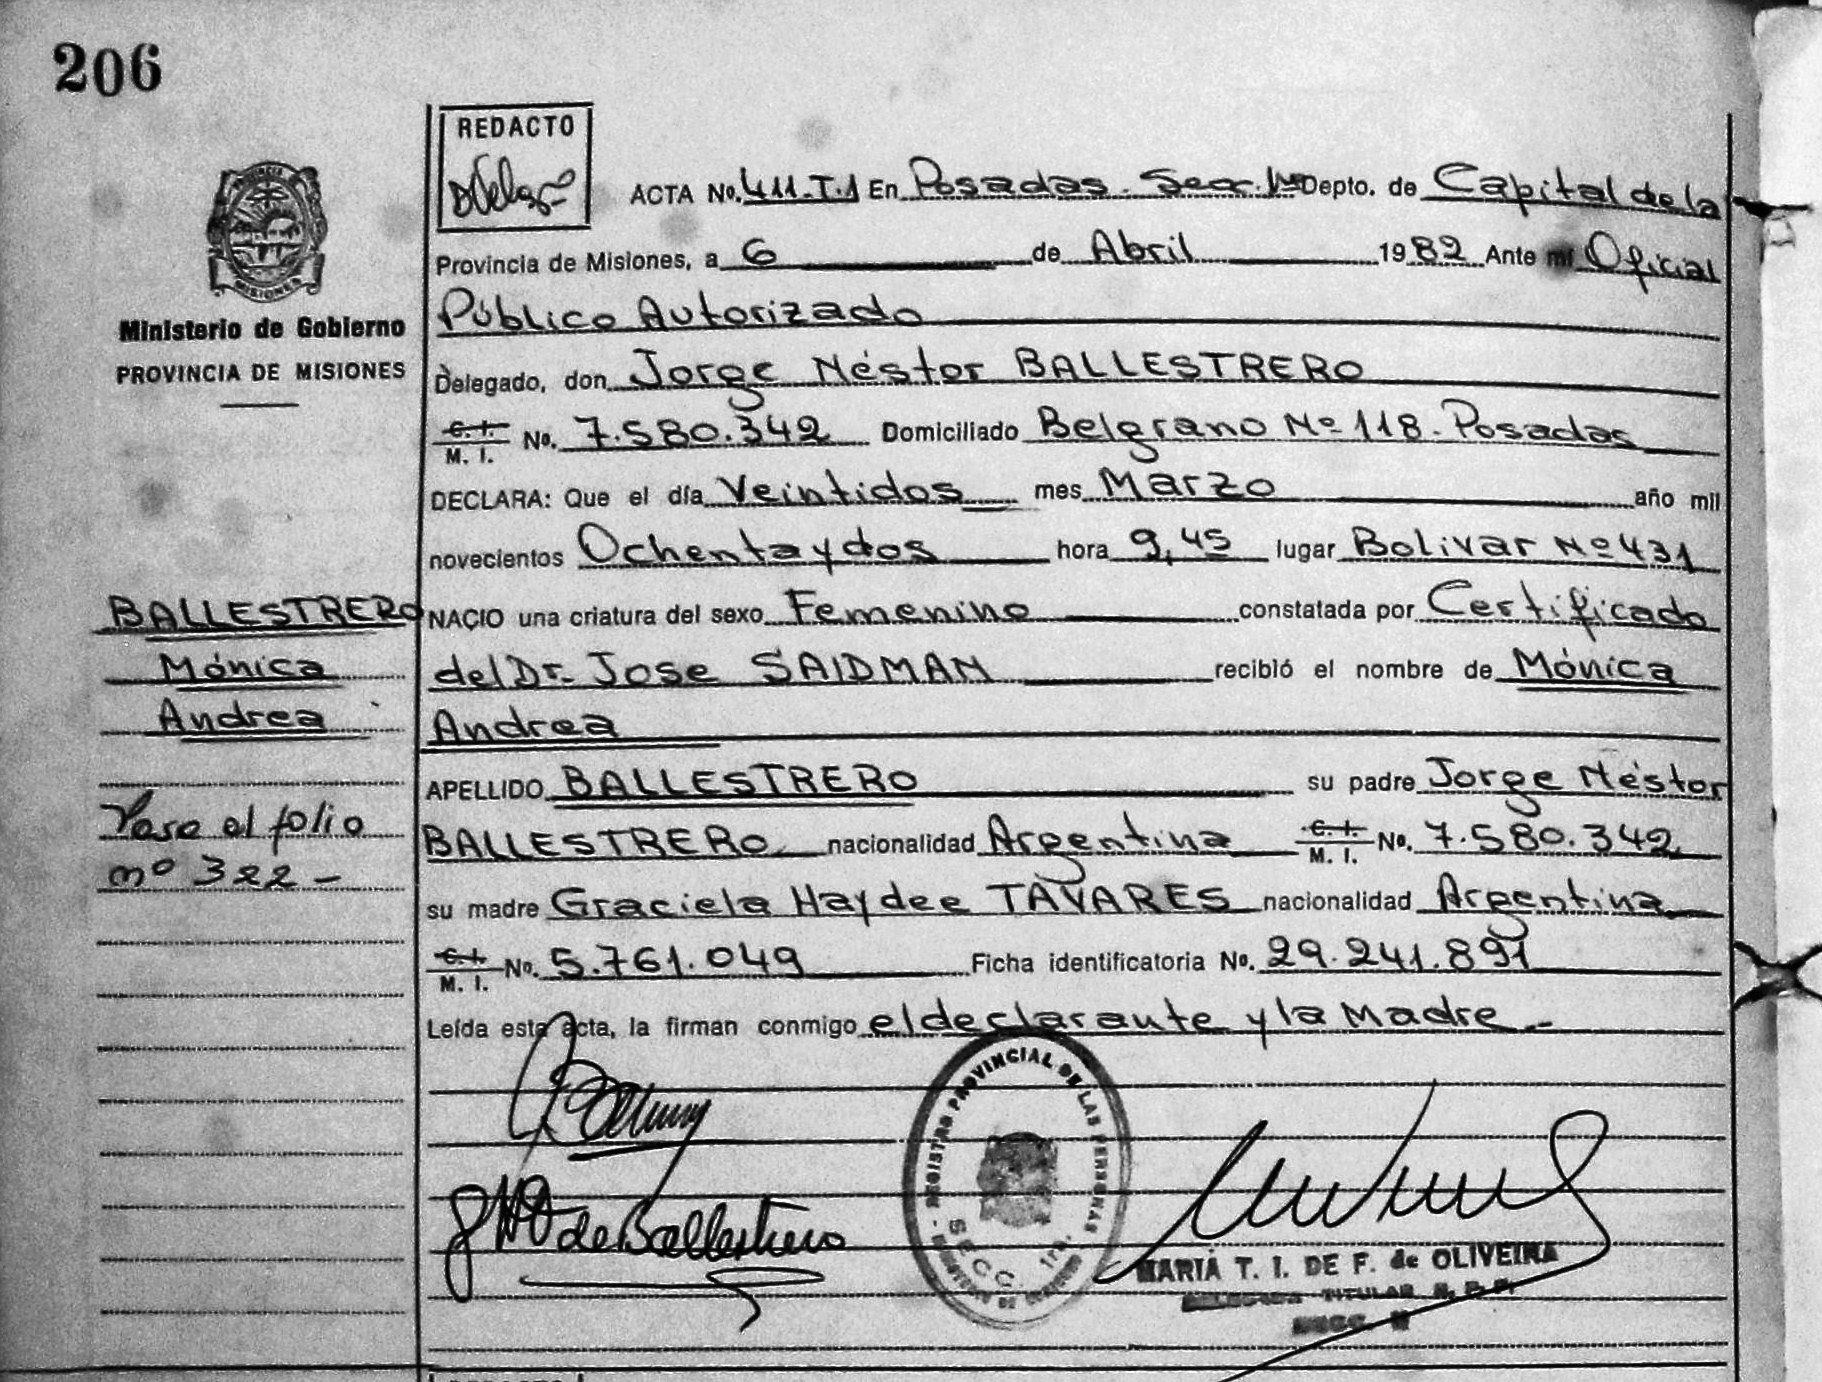 206
REDACTO
ACTA No. 411.T.1 En Posadas. Secc. 1ra Depto. de Capital de la
Provincia de Misiones, a 6 de Abril 1982 Ante mi Oficial
Público Autorizado
Delegado, don Jorge Néstor BALLESTRERO
C. I.
M. I. No. 7.580.342 Domiciliado Belgrano Nº 118. Posadas
DECLARA: Que el día Veintidos mes Marzo año mil
novecientos Ochenta y dos hora 9,45 lugar Bolivar Nº 431
NACIO una criatura del sexo Femenino constatada por Certificado
del Dr. Jose SAIDMAN recibió el nombre de Mónica
Andrea
APELLIDO BALLESTRERO su padre Jorge Néstor
BALLESTRERO nacionalidad Argentina C. I. M. I. No. 7.580.342
su madre Graciela Haydee TAVARES nacionalidad Argentina
C. I.
M. I. No. 5.761.049 Ficha identificatoria No. 29.241.891
Leída esta acta, la firman conmigo el declarante y la Madre
PROVINCIA
MISIONES
Ministerio de Gobierno
PROVINCIA DE MISIONES
BALLESTRERO
Mónica
Andrea
Pasa al folio
nº 322 -
de Ballestrero
REGISTRO PROVINCIAL DE LAS PERSONAS
SECC. 1ra.
MINISTERIO DE GOBIERNO
MARIA T. I. DE F. de OLIVEIRA
TITULAR R. P. P.
SECC.
REDACTO